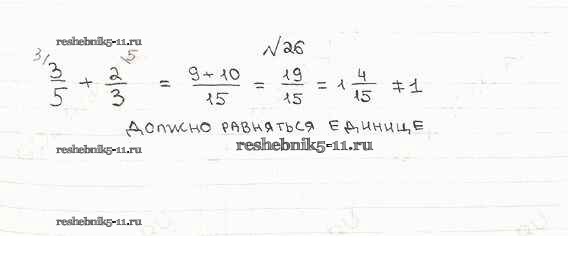 reshebnik5-11.ru
№26
3/5 + 2/3 = 9+10/15 = 19/15 = 1 4/15 ≠ 1
ДОЛЖНО РАВНЯТЬСЯ ЕДИНИЦЕ
reshebnik5-11.ru
reshebnik5-11.ru
reshebnik5-11.ru